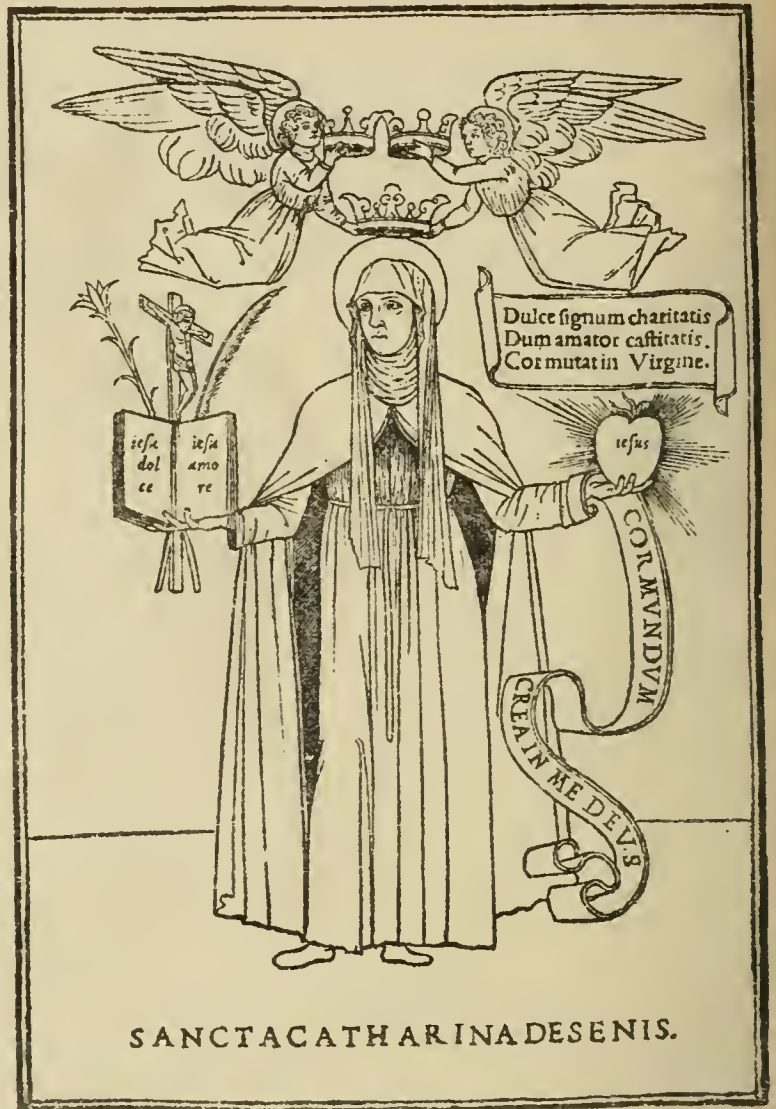 Dulce ſignum charitatis
Dum amator caſtitatis.
Cor mutat in Virgine.
ieſu
dol
ce
ieſu
amo
re
ieſus
COR MVNDVM
CREA IN ME DEVS
SANCTA CATHARINA DE SENIS.